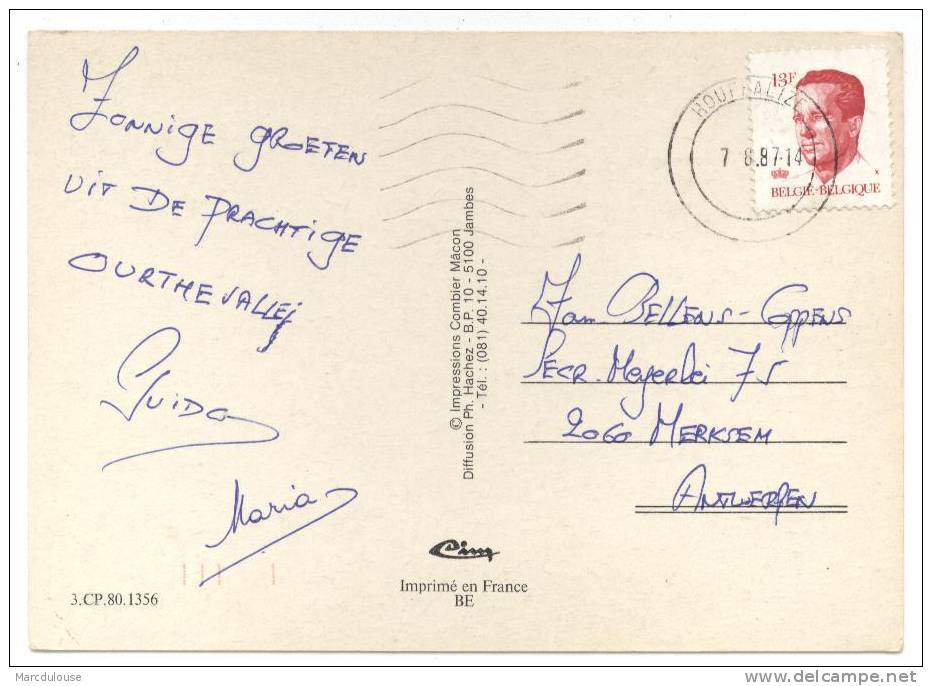 Zonnige groeten
uit de prachtige
Ourthevallei
Guido
Maria
3.CP.80.1356
© Impressions Combier Mâcon
Diffusion Ph. Hachez - B.P. 10 - 5100 Jambes
- Tél. : (081) 40.14.10 -
Cim
Imprimé en France
BE
HOUFFALIZE
7 8.87-14
13F
BELGIË-BELGIQUE
Fam. BELLENS - Coppens
Secr. Meyerlei 75
2060 MERKSEM
ANTWERPEN
Marcdulouse
delcampe.net